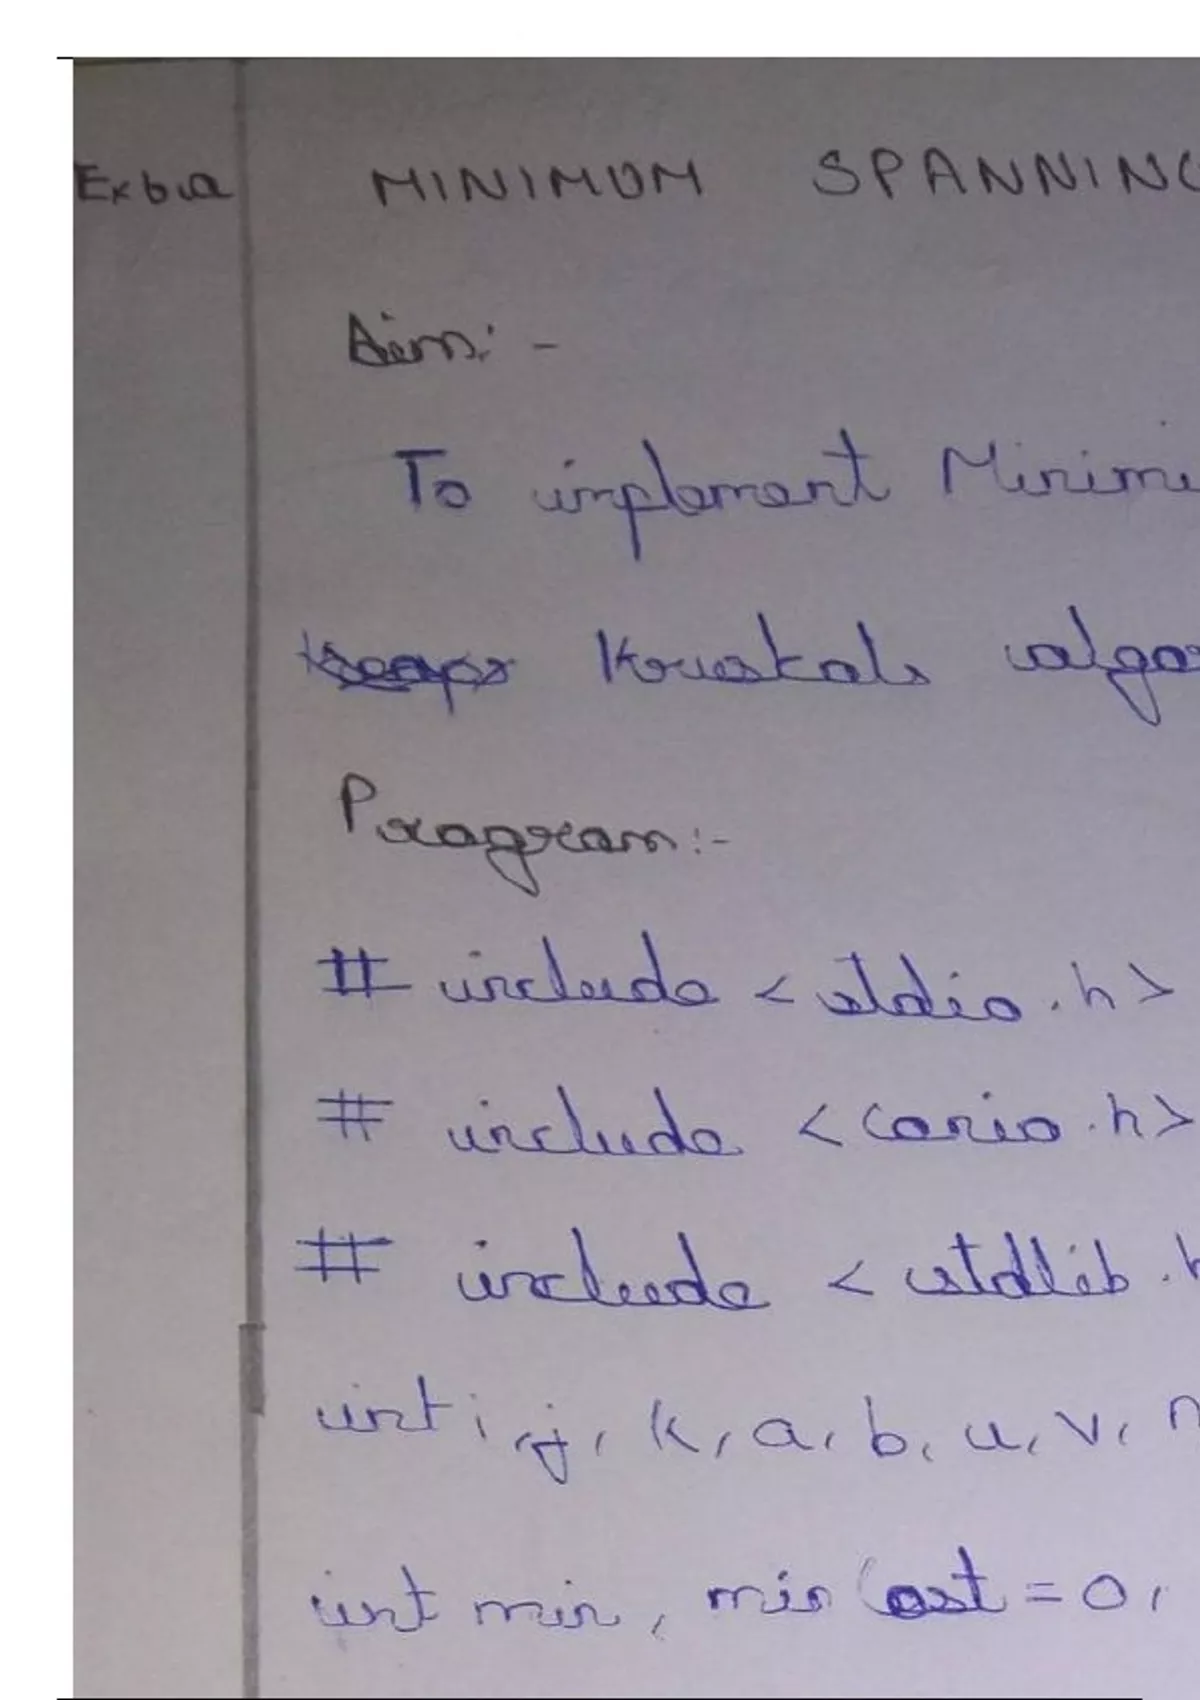 Ex 6.a MINIMUM SPANNING
Aim: -
To implement Minim
Kruskals algor
Program:-
# include <stdio.h>
# include <conio.h>
# include <stdlib.h
int i, j, k, a, b, u, v, n
int min, min cost = 0,